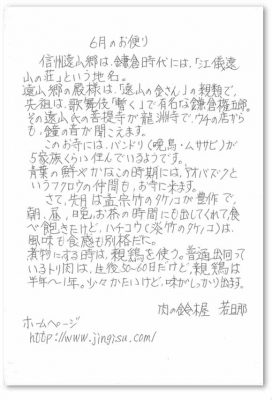 6月のお便り
信州遠山郷は、鎌倉時代には、「江儀遠
山の荘」という地名。
遠山郷の殿様は、「遠山の金さん」の親類で、
先祖は、歌舞伎「暫く」で有名な鎌倉権五郎。
その遠山氏の菩提寺が龍渕寺で、ウチの店から
も、鐘の音が聞こえます。
このお寺には、バンドリ(晩鳥・ムササビ)が
5家族くらい住んでいるようです。
青葉の鮮やかなこの時期には、アオバズクと
いうフクロウの仲間も、お寺に来ます。
さて、先月は孟宗竹のタケノコが豊作で、
朝、昼、晩、お茶の時間にも出してくれて食
べ飽きたけど、ハチコウ(淡竹のタケノコ)は、
風味も食感も別格だに。
煮物にする時は、親鶏を使う。普通出回って
いるトリ肉は、生後50〜60日だけど、親鶏は
半年〜1年。少々かたいけど、味がしっかり出ます。
肉の鈴木屋 若旦那
ホームページ
http://www.jingisu.com/